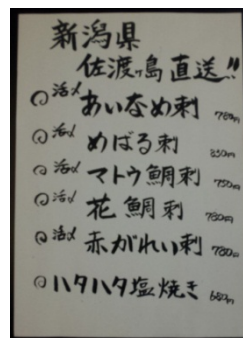 新潟県
佐渡ヶ島直送!!
活〆あいなめ刺 780円
活〆めばる刺 850円
活〆マトウ鯛刺 750円
活〆花鯛刺 780円
活〆赤がれい刺 780円
ハタハタ塩焼き 680円